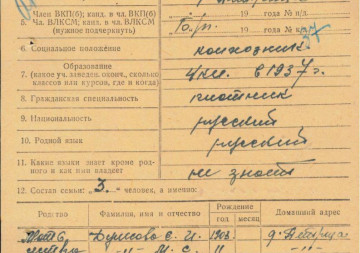 Член ВКП(б); канд. в чл. ВКП(б) 19 года № п/б.
5. Член ВЛКСМ; канд. в чл. ВЛКСМ Б/п. 19 года № к/б.
(нужное подчеркнуть) 37
6. Социальное положение колхозник
Образование
7. (какое уч. заведен. оконч., сколько 4 кл. в 1937 г.
классов или курсов, где и когда)
8. Гражданская специальность плотник
9. Национальность русский
10. Родной язык русский
11. Какие языки знает кроме родного и как ими владеет не знает
12. Состав семьи: 3 - человек, а именно:
Родство Фамилия, имя и отчество Рождение Домашний адрес
год месяц
Мать Е. И. 1903 д.
сестра -"- М. С. -"-